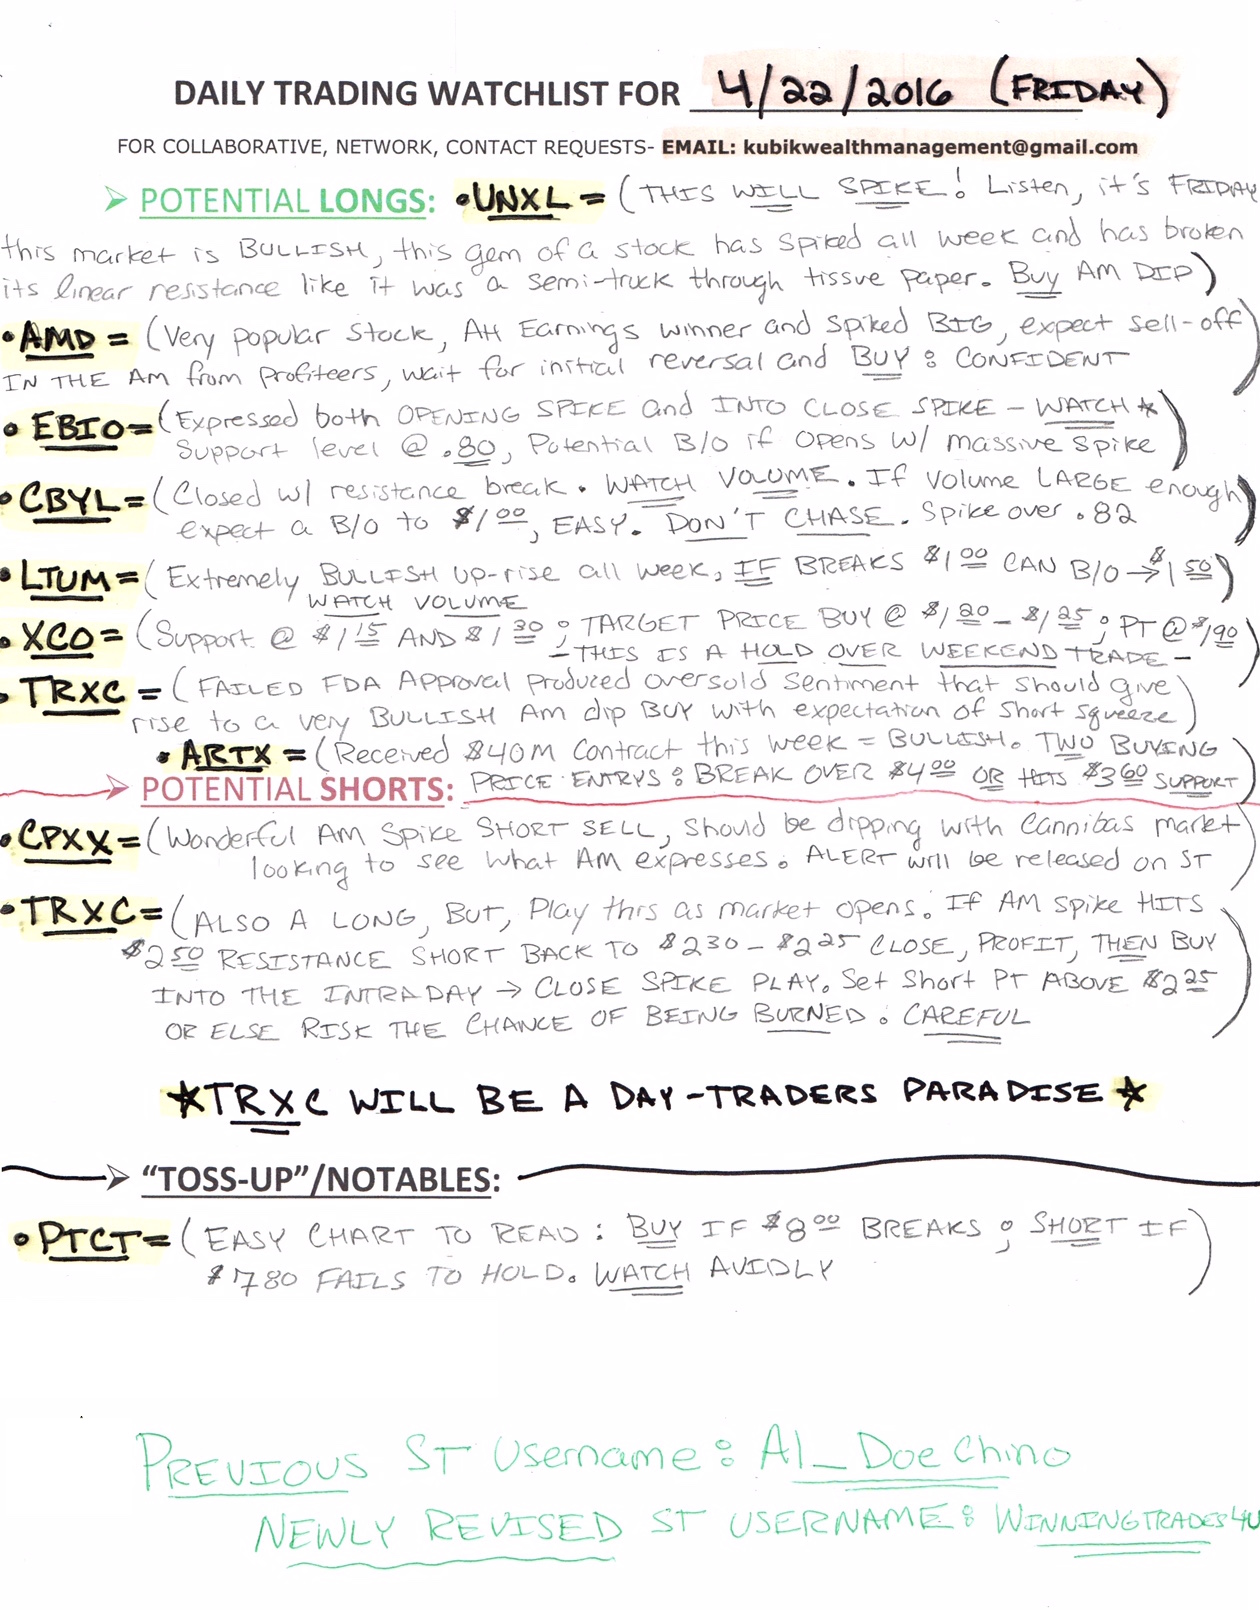 DAILY TRADING WATCHLIST FOR 4/22/2016 (FRIDAY)
FOR COLLABORATIVE, NETWORK, CONTACT REQUESTS- EMAIL: kubikwealthmanagement@gmail.com
➢ POTENTIAL LONGS: •UNXL = (THIS WILL SPIKE! Listen, it's FRIDAY
this market is BULLISH, this gem of a stock has spiked all week and has broken
its linear resistance like it was a semi-truck through tissue paper. Buy AM DIP)
•AMD = (Very popular stock, AH Earnings winner and spiked BIG, expect sell-off
IN THE AM from profiteers, wait for initial reversal and BUY: CONFIDENT)
• EBIO= (Expressed both OPENING SPIKE and INTO CLOSE SPIKE - WATCH*
Support level @ .80, Potential B/O if opens w/ massive spike)
•CBYL= (Closed w/ resistance break. WATCH VOLUME. If volume LARGE enough
expect a B/O to $1.00, EASY. DON'T CHASE. Spike over .82)
•LTUM= (Extremely BULLISH up-rise all week, IF BREAKS $1.00 CAN B/O → $1.50)
WATCH VOLUME
•XCO= (Support @ $1.15 AND $1.30; TARGET PRICE BUY @ $1.20 - $1.25; PT @ $1.90)
-THIS IS A HOLD OVER WEEKEND TRADE-
•TRXC = (FAILED FDA Approval produced oversold sentiment that should give
rise to a very BULLISH Am dip BUY with expectation of short squeeze)
•ARTX = (Received $40M contract this week = BULLISH. TWO BUYING
PRICE ENTRYS: BREAK OVER $4.00 OR HITS $3.60 SUPPORT)
➢ POTENTIAL SHORTS:
•CPXX= (Wonderful AM Spike SHORT SELL, should be dipping with Cannibas market
looking to see what AM expresses. ALERT will be released on ST)
•TRXC= (ALSO A LONG, BUT, Play this as market opens. If AM spike HITS
$2.50 RESISTANCE SHORT BACK TO $2.30 - $2.25 CLOSE, PROFIT, THEN BUY
INTO THE INTRADAY → CLOSE SPIKE PLAY. Set Short PT ABOVE $2.25
OR ELSE RISK THE CHANCE OF BEING BURNED: CAREFUL)
*TRXC WILL BE A DAY-TRADERS PARADISE*
➢ "TOSS-UP"/NOTABLES:
•PTCT= (EASY CHART TO READ: BUY IF $8.00 BREAKS; SHORT IF
$7.80 FAILS TO HOLD. WATCH AVIDLY)
PREVIOUS ST Username: Al_DoeChino
NEWLY REVISED ST USERNAME: WINNINGTRADES4U